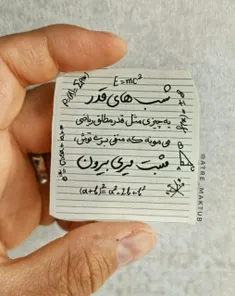 E=mc²
شب‌های قدر
یه چیزی مثل قدر مطلق ریاضی
می‌مونه که منفی بری توش،
مثبت میری بیرون
(a+b)²=a²+2b+b²
@ATRE_MAKTUB